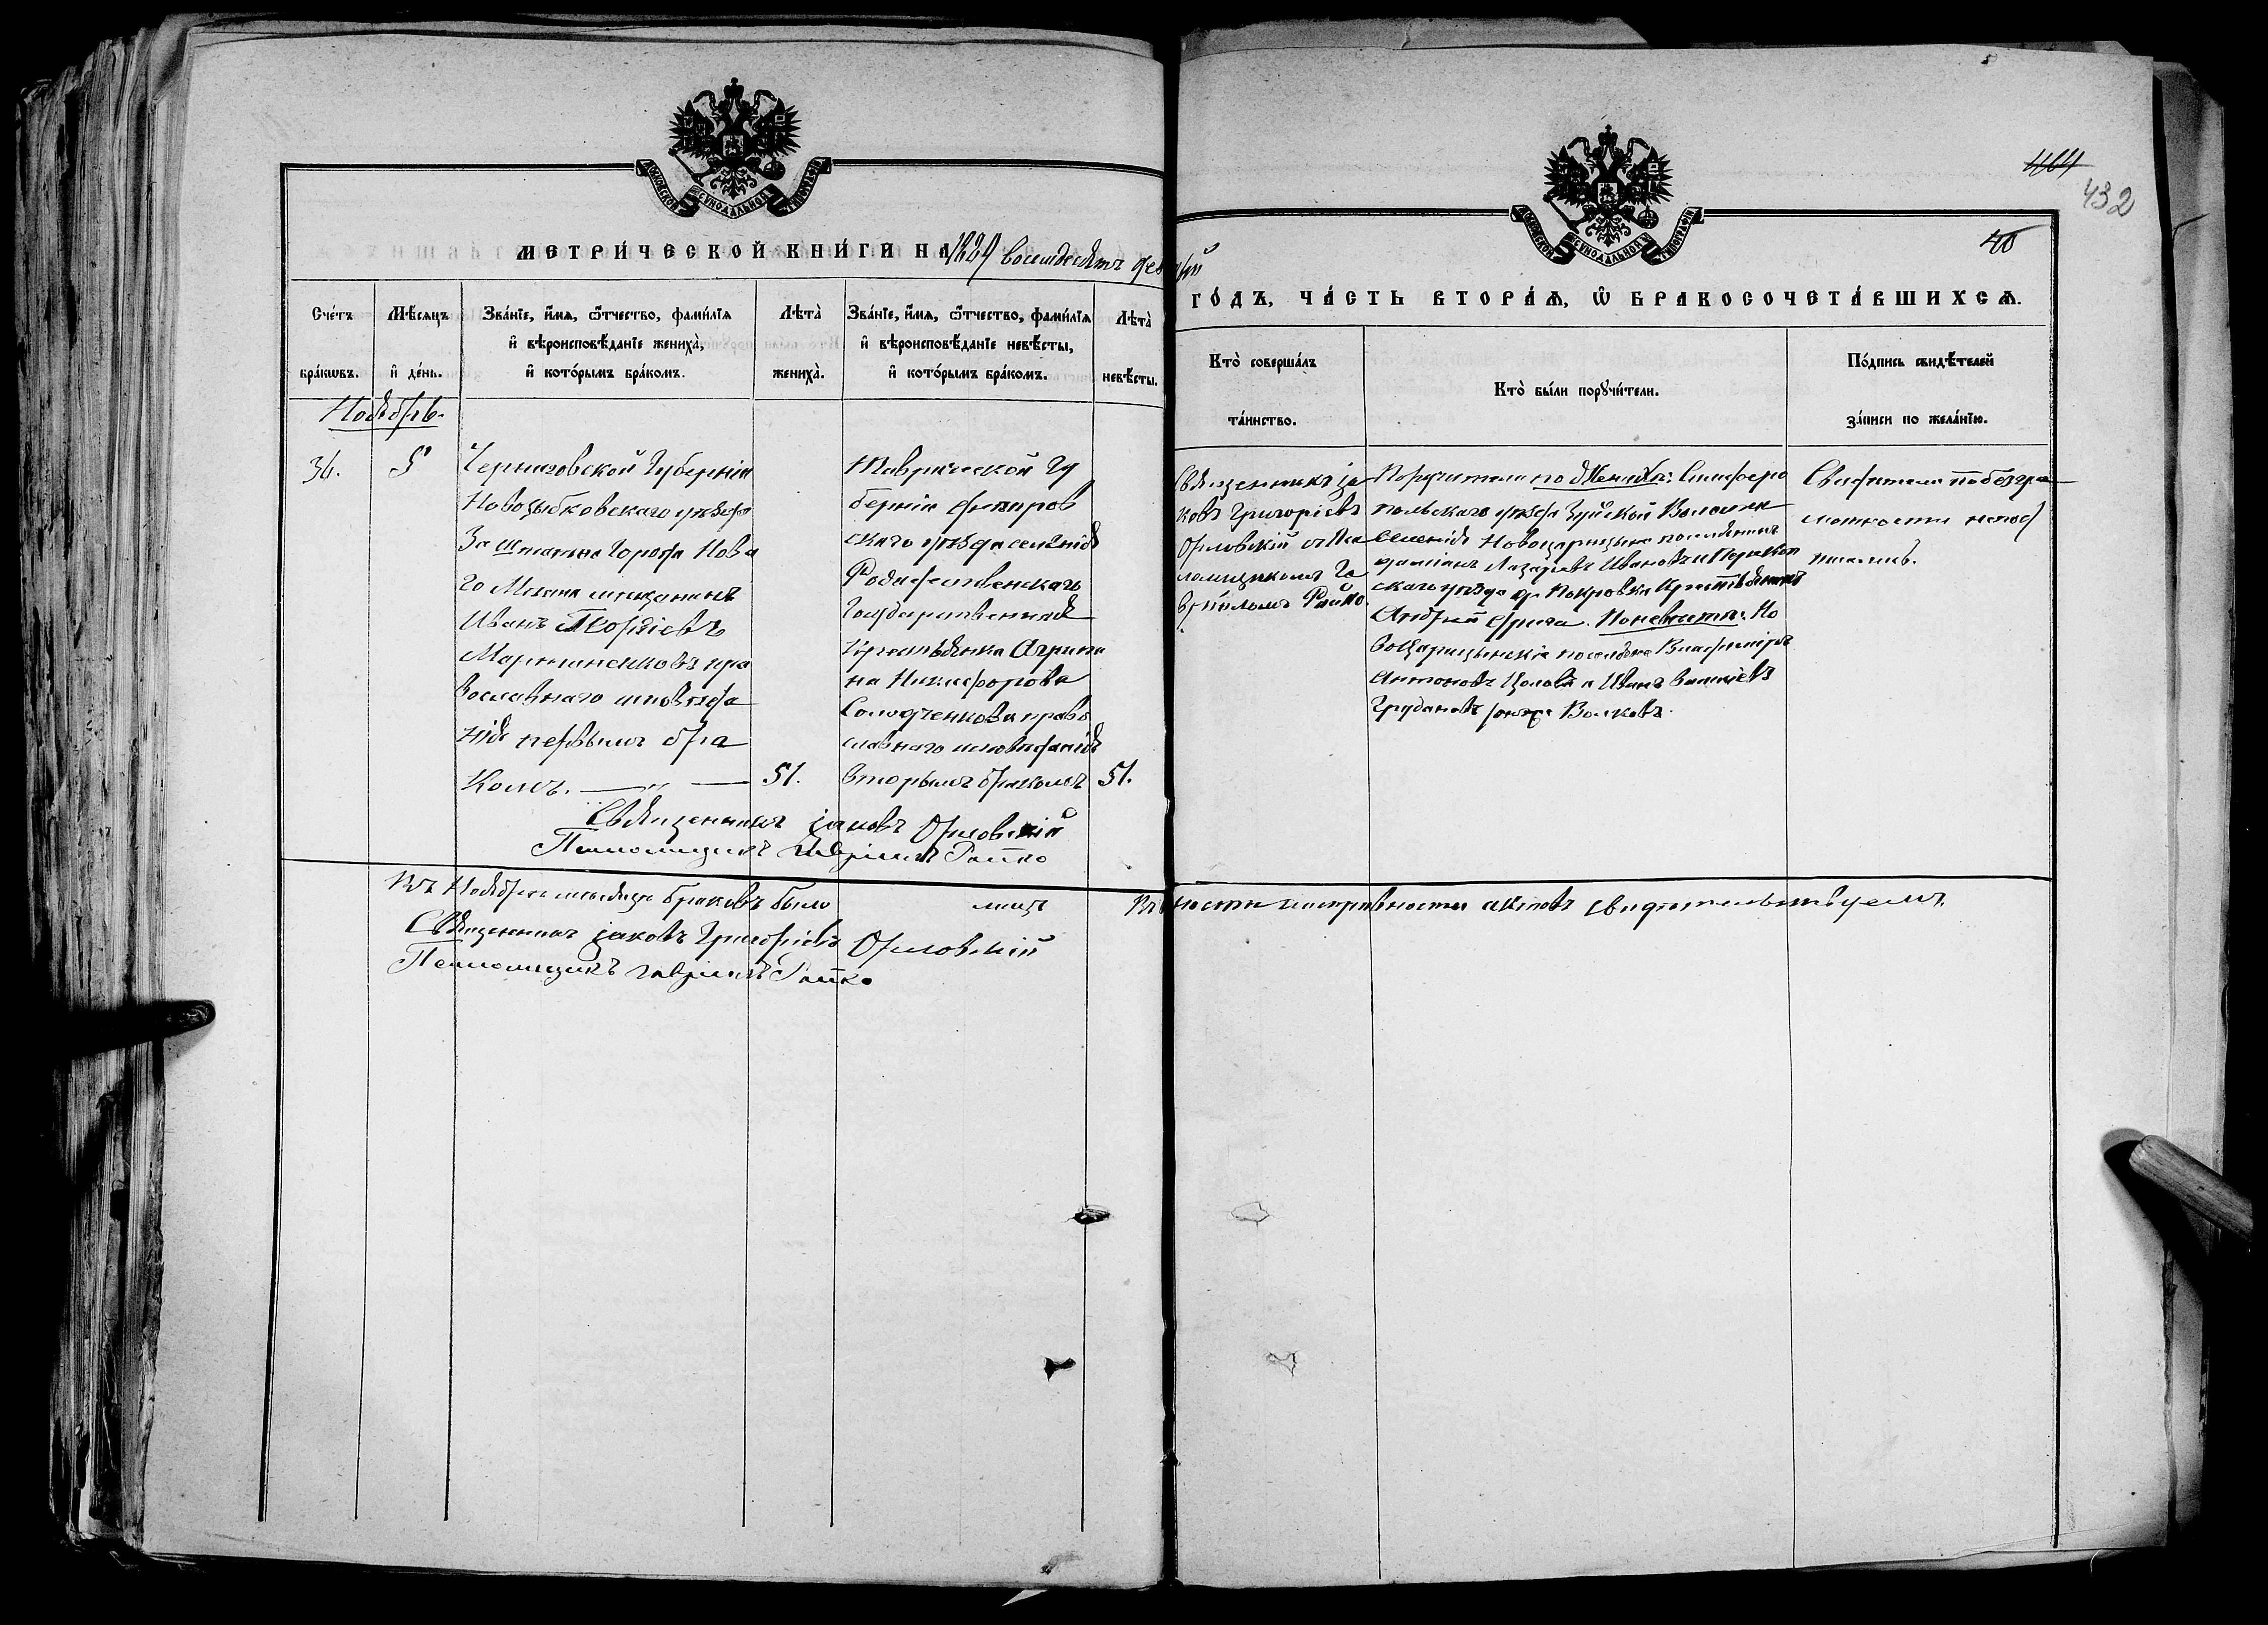 МОСКОВСКОЙ СѴНОДАЛЬНОЙ ТИПОГРАФІИ
МЕТРИ́ЧЕСКОЙ КНИ́ГИ НА 1889 восемдесятъ девятый
Сче́тъ бра́кѡвъ.
Мѣ́сяцъ и҆ де́нь.
Зва́нїе, и҆́мя, ѻ҆́тчество, фами́лїя
и҆ вѣроисповѣ́данїе жениха̀,
и҆ кото́рымъ бра́комъ.
Лѣта̀ жениха̀.
Зва́нїе, и҆́мя, ѻ҆́тчество, фами́лїя
и҆ вѣроисповѣ́данїе невѣ́сты,
и҆ кото́рымъ бра́комъ.
Лѣта̀ невѣ́сты.
Ноябрь.
36.
5
Черниговской Губерніи
Новозыбковскаго уѣзда
Заштатна Города Нова
го Места мещанинъ
Иванъ Георгіевъ
Мартиненковъ пра
вославнаго исповѣда
нія первымъ бра
комъ. — " —
51.
Таврической Гу
берніи Днепров
скаго уѣзда селенія
Рождественскаго
Государственная
Крестьянка Агрипи
на Никифорова
Солодченкова право
славнаго исповѣданія
вторымъ бракомъ
51.
Священникъ Іаковъ Орловскій
Псаломщикъ Гавріилъ Райко
Въ Ноябрѣ месяце браковъ было
лицъ
Священникъ Іаковъ Григоріевъ Орловскій
Псаломщикъ Гавріилъ Райко
МОСКОВСКОЙ СѴНОДАЛЬНОЙ ТИПОГРАФІИ
464
432
40
ГО́ДЪ, ЧА́СТЬ ВТОРА́Я, Ѡ҆ БРАКОСОЧЕТА́ВШИХСЯ.
Кто̀ соверша́лъ
та́инство.
Кто̀ бы́ли порꙋчи́тели.
По́дпись свидѣ́телей
за́писи по жела́нїю.
Священникъ Іа
ковъ Григоріевъ
Орловскій съ Пса
ломщикомъ Га
вріиломъ Райко.
Поручители по Женихѣ: Симферо
польскаго уѣзда Зуйской Волости
селенія Новоцарицына поселянинъ
даміанъ Лазаревъ Ивановъ и Перекоп
скаго уѣзда д. Покровки Крестьянинъ
Андрей Фрига. По невѣсте: Но
воЦарицынскіе поселяне Владиміръ
Антоновъ и Иванъ
Волковъ.
Свидители по безгра
мотности непод
писались.
Вѣрность и исправность актовъ свидетельствуемъ.